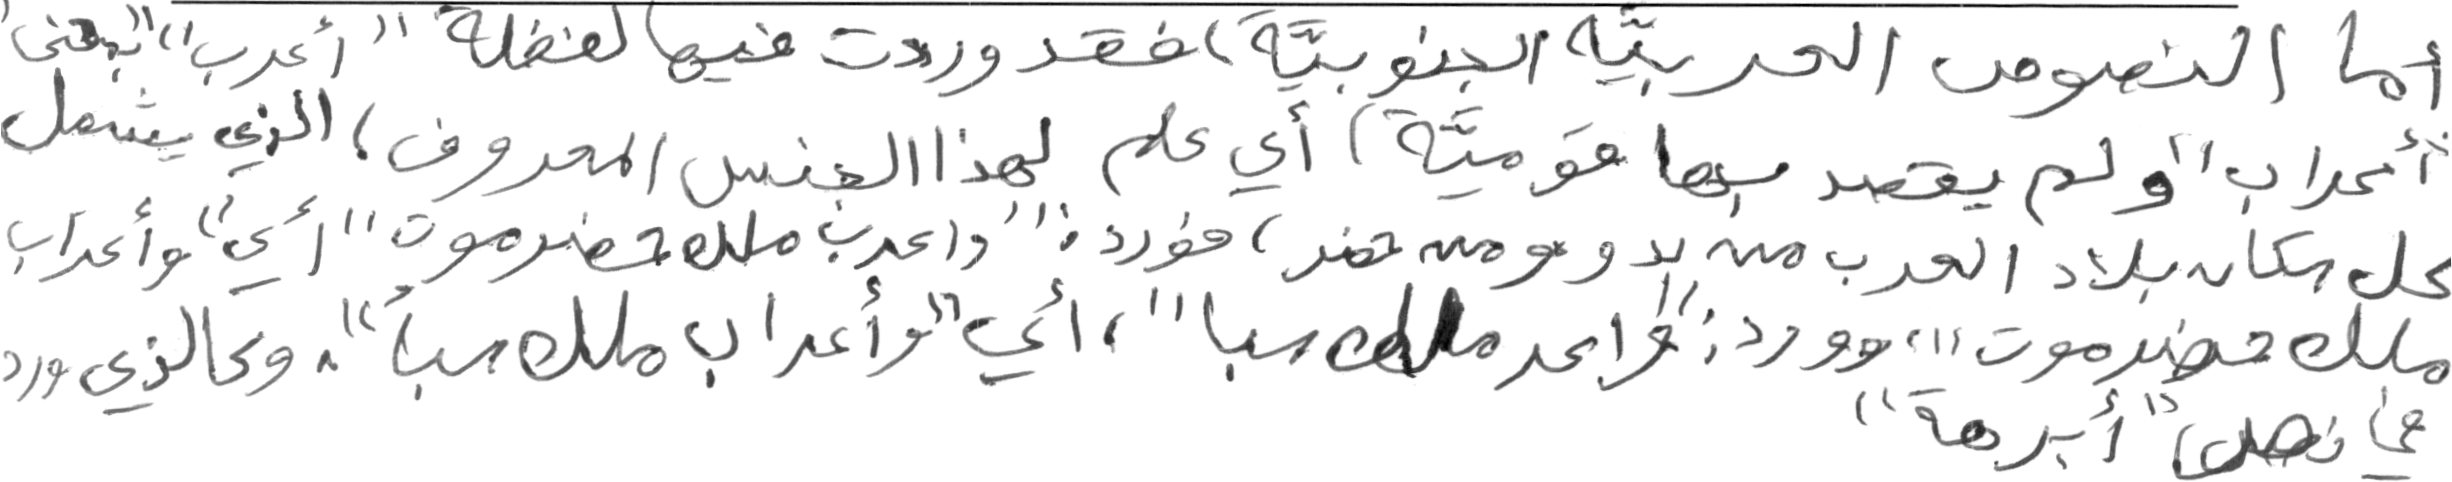 أما النصوص العربيّة الجنوبيّة، فقد وردت فيها لفظة "أعرب" "بمعنى
"أعراب" ولم يقصد بها قوميّة، أي علم لهذا الجنس المعروف، الذي يشمل
كل سكان بلاد العرب من بدو ومن حضر، فورد: "واعرب ملك حضرموت" أي "وأعراب
ملك حضرموت"، وورد: "واعر ملك سبا"، أي "وأعراب ملك سبأ". وكالذي ورد
في نص "أبرهة"